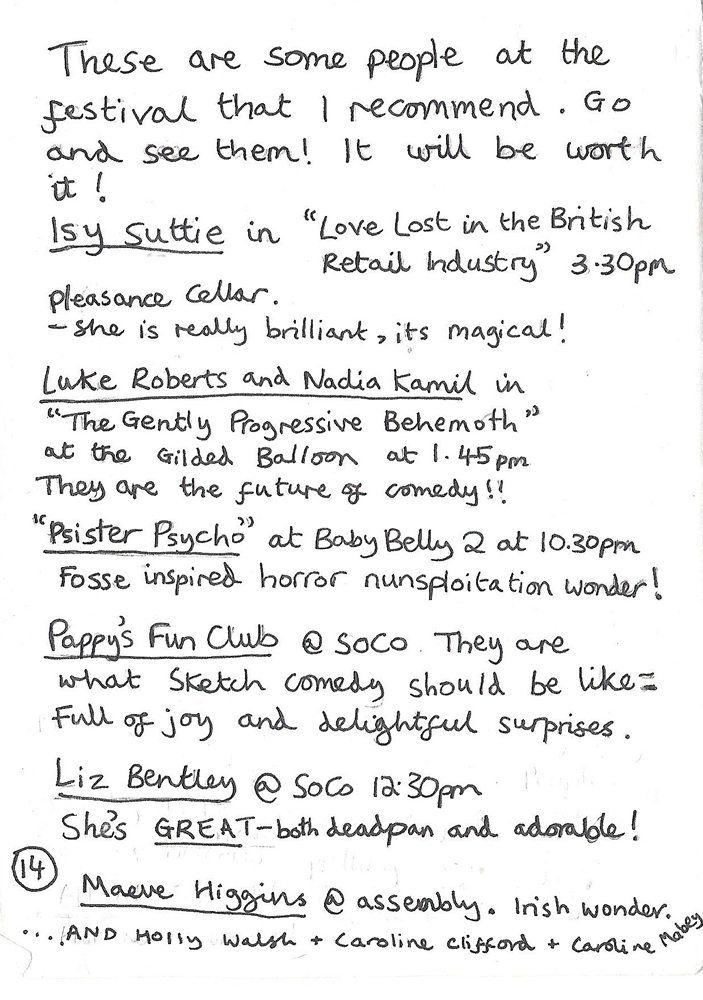 These are some people at the
festival that I recommend. Go
and see them! It will be worth
it!
Isy Suttie in "Love Lost in the British
Retail Industry" 3.30pm
pleasance cellar.
- she is really brilliant, its magical!
Luke Roberts and Nadia Kamil in
"The Gently Progressive Behemoth"
at the Gilded Balloon at 1.45pm
They are the future of comedy!!
"Psister Psycho" at Baby Belly 2 at 10.30pm
Fosse inspired horror nunsploitation wonder!
Pappy's Fun Club @ SoCo. They are
what Sketch comedy should be like =
Full of joy and delightful surprises.
Liz Bentley @ SoCo 12:30pm
She's GREAT - both deadpan and adorable!
14
Maeve Higgins @ assembly. Irish wonder.
...AND Holly Walsh + Caroline Clifford + Caroline Mabey